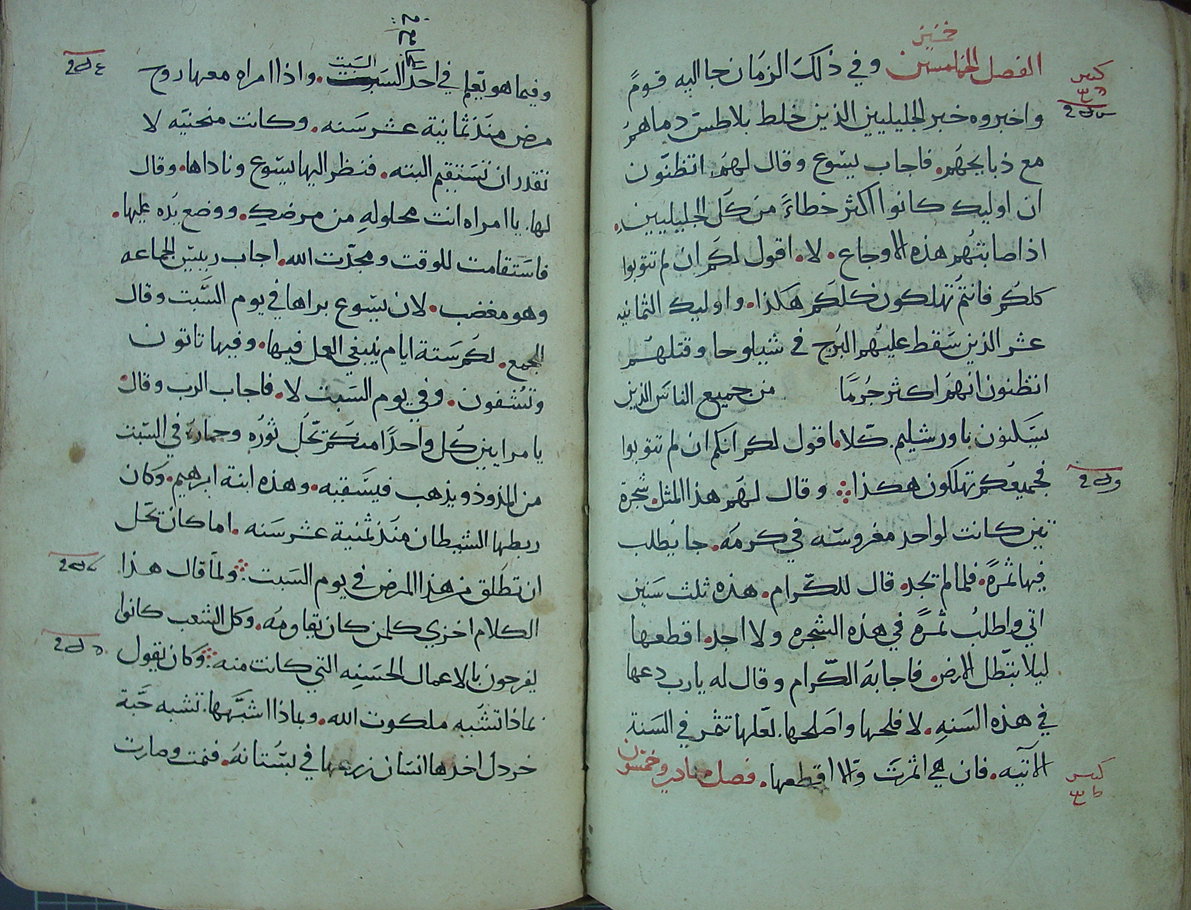 الفصل الخامسين وفي ذلك الزمان جا اليه قومً
واخبروه خبر الجليليين الذين خلط بلاطس دماهمُ
مع ذبايحهم. فاجاب يسوع وقال لهم. اتظنّون
ان اوليك كانوا اكثر خطاءً من كل الجليليين.
اذ اصابتهُم هذه الاوجاع. لا. اقول لكم ان لم تتوبوا
كلكم فانتُم تهلكون كلكم هكذا. واوليك الثمانيه
عشر الذين سقط عليهُم البرج في شيلوحا وقتلهُم
اتظنون انهُم اكثر جُرمًا من جميع الناس الذين
يسكنون باورشليم. كلا. اقول لكم انكم ان لم تتوبوا
فجميعُكم تهلكون هكذا وقال لهم هذا المثل. شجرة
تين كانت لواحد مغروسَه في كرمه. جا يطلب
فيها ثمرةً. فلما لم تجد. قال للكرام. هذه ثلث سنين
اتي واطلبُ ثمرةً في هذه الشجره ولا اجد. اقطعها
ليلا تبّطل الارض. فاجابهُ الكّرام وقال له يارب دعها
في هذه السَنه. لافلحها واصلحها. لعّلها تثمر في السَنة
الآتيه. فان هي اثمرت والا اقطعها. فصل سادس وخمسون
وفيما هو يعّلم في احد السبت السبت. واذا امراه معها روح
مرض منذ ثمانية عشر سَنه. وكانت منحنيّه لا
تقدر ان تستقيم البته. فنظر اليها يسوع وناداها. وقال
لها. يا امراه انت محلوله من مرضكِ. ووضع يَده عليها.
فاستقامت للوقت ومجدّت الله. اجاب رييس الجماعه
وهو مغضب. لان يسوع براها في يوم السَّبت وقال
للجمع. لكم سَتة ايام ينبغي العمل فيها. وفيها تاتون
وتسُتشفون. وفي يوم السَبت لا. فاجاب الرب وقال
يا مرايين كل واحدًا منكم تحّل ثورُه وحماره في السّبت
من المذود ويذهب فيسَقيه. وهذه ابنة ابرهيم. وكان
ربطها الشيطان منذ ثمنية عشر سَنه. اما كان تحَل
ان تطلق من هذا المرض في يوم السَبت ولمّا قال هذا
الكلام اخزي كلمن كان يقاومهُ. وكل الشعب كانوا
يفرحون بالاعمال الحسَنه التي كانت منه وكان يقول
بماذا تشُبه ملكوت الله. وبماذا اشبَّهها. تشبه حَبة
خردل اخذها انسَان زرعها في بسُتانهُ. فنمت وصارت